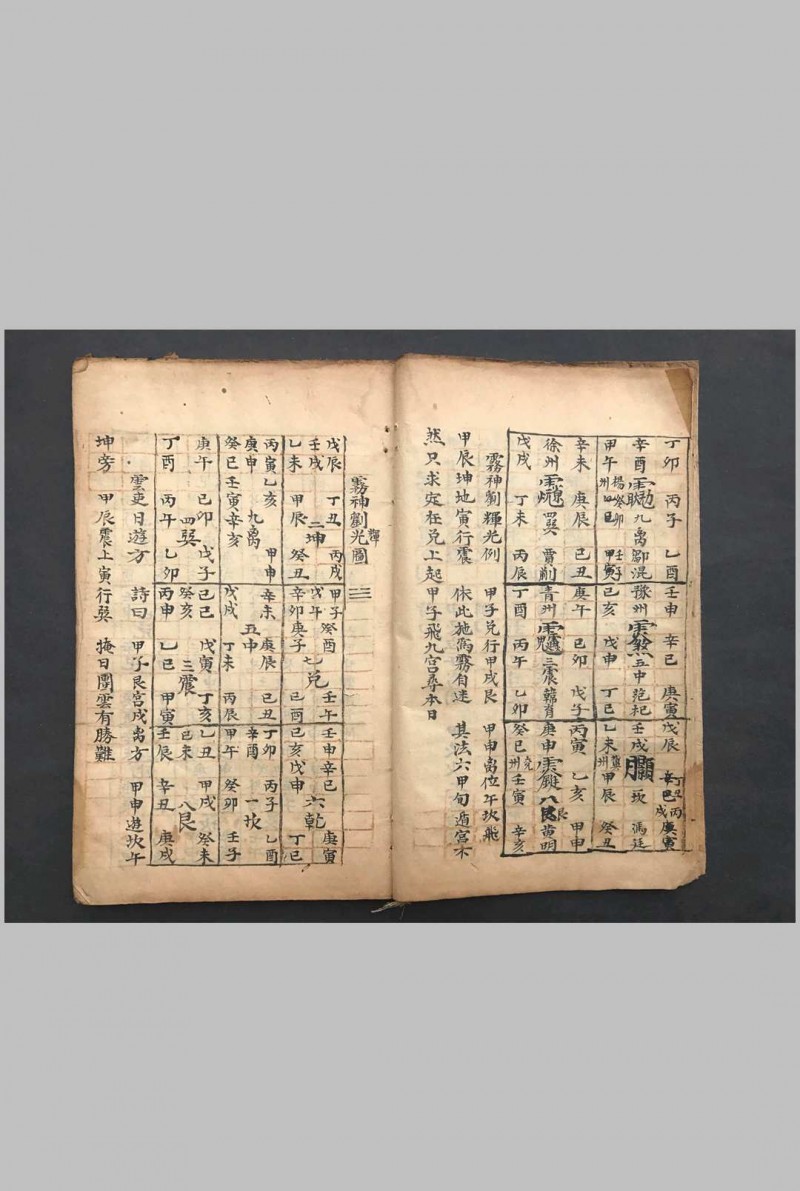 丁卯 丙子 乙酉 壬申 辛巳 庚寅 戊辰
辛酉 九离 鄒混 豫州 五中 范祀 壬戌 坎 馮廷
甲午 楊州 癸卯 壬子 己亥 戊申 丁巳 乙未 冀州 甲辰 癸丑
辛未 庚辰 己丑 庚午 己卯 戊子 丙寅 乙亥 甲申
徐州 四巽 賈 青州 三震 韓育 庚申 八艮 黄明
戊戌 丁未 丙辰 丁酉 丙午 乙卯 癸巳 兖州 壬寅 辛亥
霧神劉輝光例 甲子兑行甲戌艮 甲申离位午坎飛
甲辰坤地寅行震 依此施為霧自迷 其法六甲旬遁宫不
然只求定在兑上起甲子飛九宫尋本日
霧神劉輝光圖 三
戊辰 丁丑 丙戌 甲子 癸酉 壬午 壬申 辛巳 庚寅
壬戌 二坤 戊午 七兑 六乾
乙未 甲辰 癸丑 辛卯 庚子 己酉 己亥 戊申 丁巳
丙寅 乙亥 甲申 辛未 庚辰 己丑 丁卯 丙子 乙酉
庚申 九离 五中 辛酉 一坎
癸巳 壬寅 辛亥 戊戌 丁未 丙辰 甲午 癸卯 壬子
庚午 己卯 戊子 己巳 戊寅 丁亥 乙丑 甲戌 癸未
四巽 癸亥 三震 己未 八艮
丁酉 丙午 乙卯 丙申 乙巳 甲寅 壬辰 辛丑 庚戌
雲吏日遊方 詩曰 甲子艮宫戌离方 甲申遊坎午
坤旁 甲辰震上寅行巽 掩日閉雲有勝難